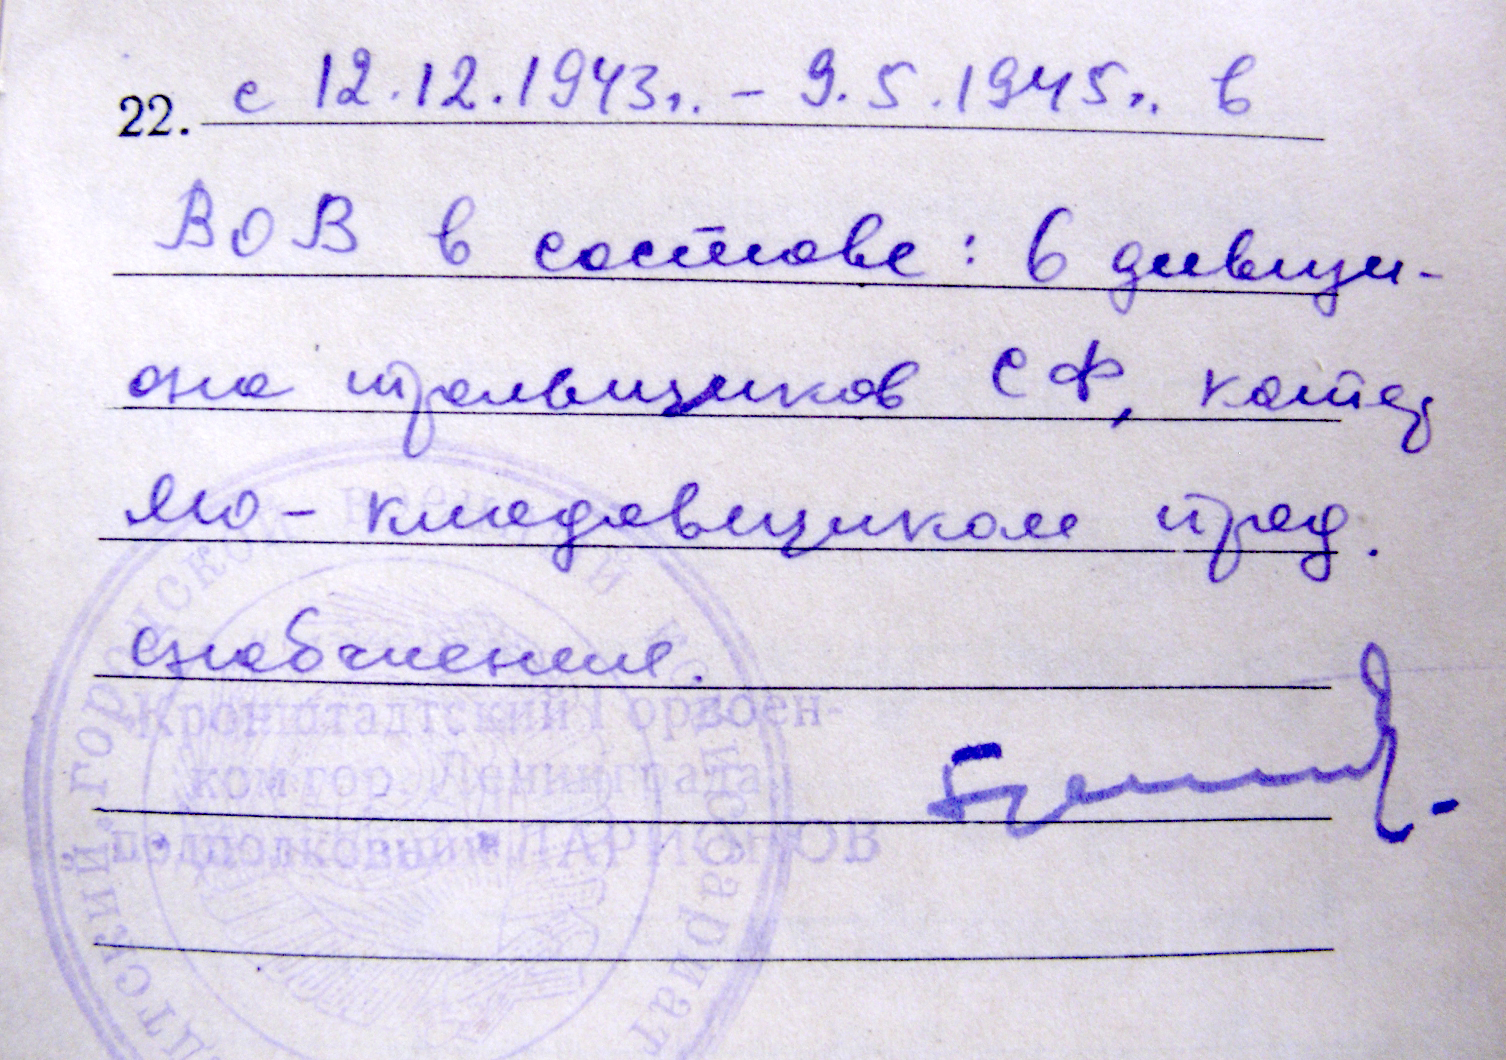 22. с 12.12.1943г. – 9.5.1945г. в
ВОВ в составе: 6 дивизи-
она тральщиков СФ,
– кладовщиком прод.
снабжения.
Кронштадтский Горвоен-
ком гор. Ленинграда
подполковник ЛАРИОНОВ